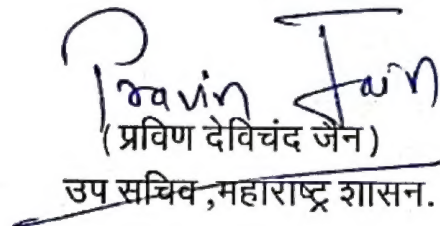 Pravin Jain
(प्रविण देविचंद जैन)
उप सचिव,महाराष्ट्र शासन.